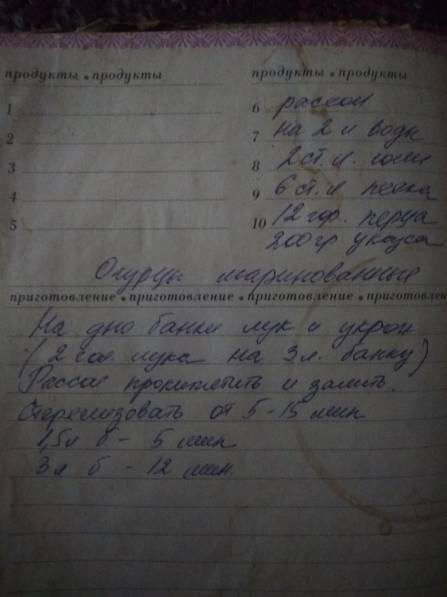 продукты • продукты
продукты • продукты
1
2
3
4
5
6 рассол
7 на 2 л воды
8 2 ст. л. соли
9 6 ст. л песка
10 12 гор. перца
200 гр уксуса
Огурцы маринованные
приготовление • приготовление • приготовление • приготовление
На дно банки лук и укроп
(2 гол. лука на 3 л. банку)
Рассол прокипятить и залить.
Стерелизовать от 5-15 мин
1,5 л б - 5 мин
3 л б - 12 мин.